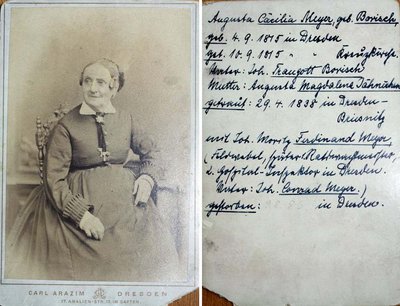 CARL ARAZIM DRESDEN
17. AMALIEN-STR. 17. IM GARTEN.
Augusta Cäcilia Meyer, geb. Borisch,
geb. 4. 9. 1815 in Dresden
get. 10. 9. 1815 " " Kreuzkirche.
Vater: Joh. Traugott Borisch
Mutter: Augusta Magdalene
getraut: 29. 4. 1838 in Dresden-
Briesnitz
mit Joh. Moritz Ferdinand Meyer,
2. Hospital-Inspektor in Dresden.
Vater: Joh. Conrad Meyer.)
gestorben: in Dresden.